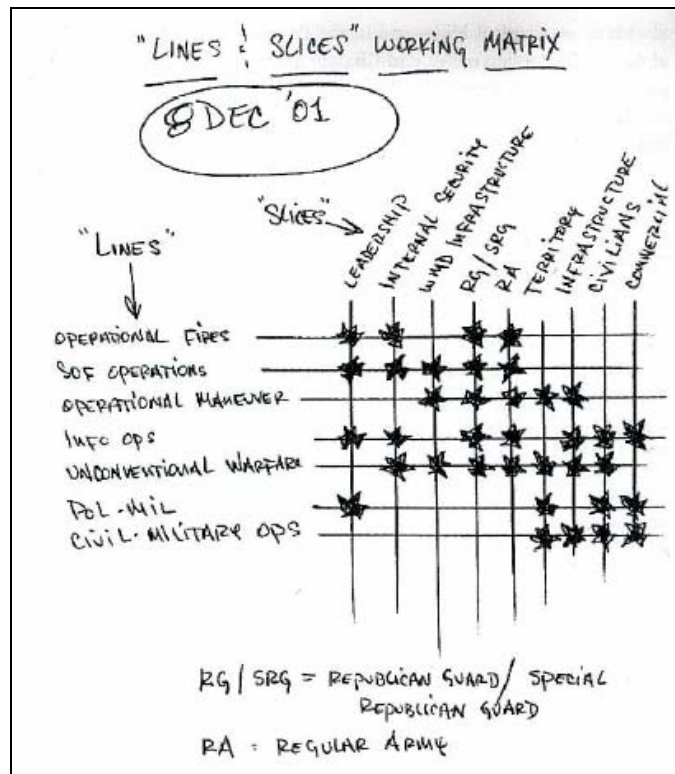 "LINES & SLICES" WORKING MATRIX
8 DEC '01
"SLICES"
"LINES"
LEADERSHIP
INTERNAL SECURITY
WMD INFRASTRUCTURE
RG/SRG
RA
TERRITORY
INFRASTRUCTURE
CIVILIANS
COMMERCIAL
OPERATIONAL FIRES
SOF OPERATIONS
OPERATIONAL MANEUVER
INFO OPS
UNCONVENTIONAL WARFARE
POL-MIL
CIVIL-MILITARY OPS
RG/SRG = REPUBLICAN GUARD/SPECIAL
REPUBLICAN GUARD
RA = REGULAR ARMY